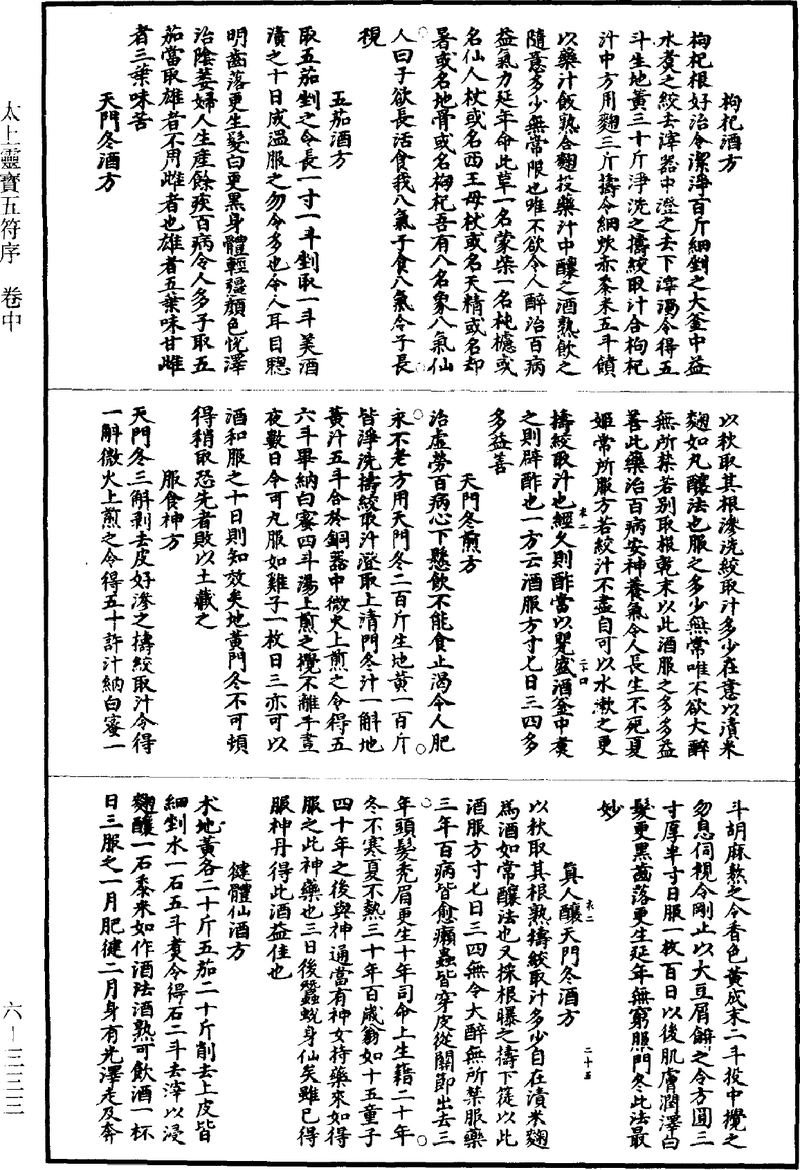 太上靈寶五符序　卷中
六—三三三
枸杞酒方
枸杞根好治令潔淨百斤細剉之大釜中益
水煮之絞去滓器中澄之去下滓濁令得五
斗生地黃三十斤淨洗之擣絞取汁合枸杞
汁中方用麴三斤擣令細炊赤黍米五斗饙
以藥汁飯熟合麴投藥汁中釀之酒熟飲之
隨意多少無常限也唯不欲令人醉治百病
益氣力延年命此草一名蒙柴一名枸檍或
名仙人杖或名西王母杖或名天精或名却
暑或名地骨或名枸杞吾有八名象八氣仙
人曰子欲長活食我八氣子食八氣令子長
視
五茄酒方
取五茄剉之令長一寸一斗剉取一斗美酒
漬之十日成溫服之勿令多也令人耳目聰
明齒落更生髮白更黑身體輕強顏色悅澤
治陰萎婦人生產餘疾百病令人多子取五
茄當取雄者不用雌者也雄者五葉味甘雌
者三葉味苦
天門冬酒方
以秋取其根滲洗絞取汁多少在意以漬米
麴如丸釀法也服之多少無常唯不欲大醉
無所禁若別取根乾末以此酒服之多多益
善此藥治百病安神養氣令人長生不死夏
姬常所服方若絞汁不盡自可以水漱之更
擣絞取汁也經久則酢當以甖盛酒釜中煮
之則辟酢也一方云酒服方寸匕日三四多
多益善
天門冬煎方
治虛勞百病心下懸飲不能食止渴令人肥
永不老方用天門冬二百斤生地黃一百斤
皆淨洗擣絞取汁澄取上清門冬汁一斛地
黃汁五斗合於銅器中微火上煎之令得五
六斗畢納白蜜四斗湯上煎之攪不離手晝
夜數日令可丸服如雞子一枚日三亦可以
酒和服之十日則知效矣地黃門冬不可頓
得稍取恐先者敗以土藏之
服食神方
天門冬三斛剝去皮好滲之擣絞取汁令得
一斛微火上煎之令得五十許汁納白蜜一
斗胡麻熬之令香色黃成末二斗投中攪之
勿息伺視令剛止以大豆屑餅之令方圓三
寸厚半寸日服一枚百日以後肌膚潤澤白
髮更黑齒落更生延年無窮服門冬此法最
妙
真人釀天門冬酒方
以秋取其根熟擣絞取汁多少自在漬米麴
為酒如常釀法也又採根曝之擣下簁以此
酒服方寸匕日三四無令大醉無所禁服藥
三年百病皆愈癩蟲皆穿皮從關節出去三
年頭髮禿眉更生十年司命上生籍二十年
冬不寒夏不熱三十年百歲翁如十五童子
四十年之後與神通當有神女持藥來如得
服之此神藥也三日後蠶蛻身仙矣雖已得
服神丹得此酒益佳也
健體仙酒方
朮地黃各二十斤五茄二十斤削去上皮皆
細剉水一石五斗煮令得石二斗去滓以浸
麴釀一石黍米如作酒法酒熟可飲酒一杯
日三服之一月肥健二月身有光澤走及奔